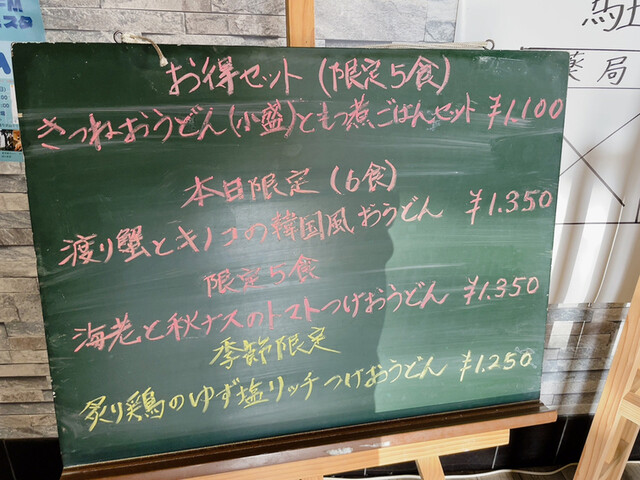 お得セット(限定5食)
きつねおうどん(小盛)ともつ煮ごはんセット ¥1,100
本日限定(6食)
渡り蟹とキノコの韓国風おうどん ¥1.350
限定5食
海老と秋ナスのトマトつけおうどん ¥1.350
季節限定
炙り鶏のゆず塩リッチつけおうどん ¥1.250
薬局